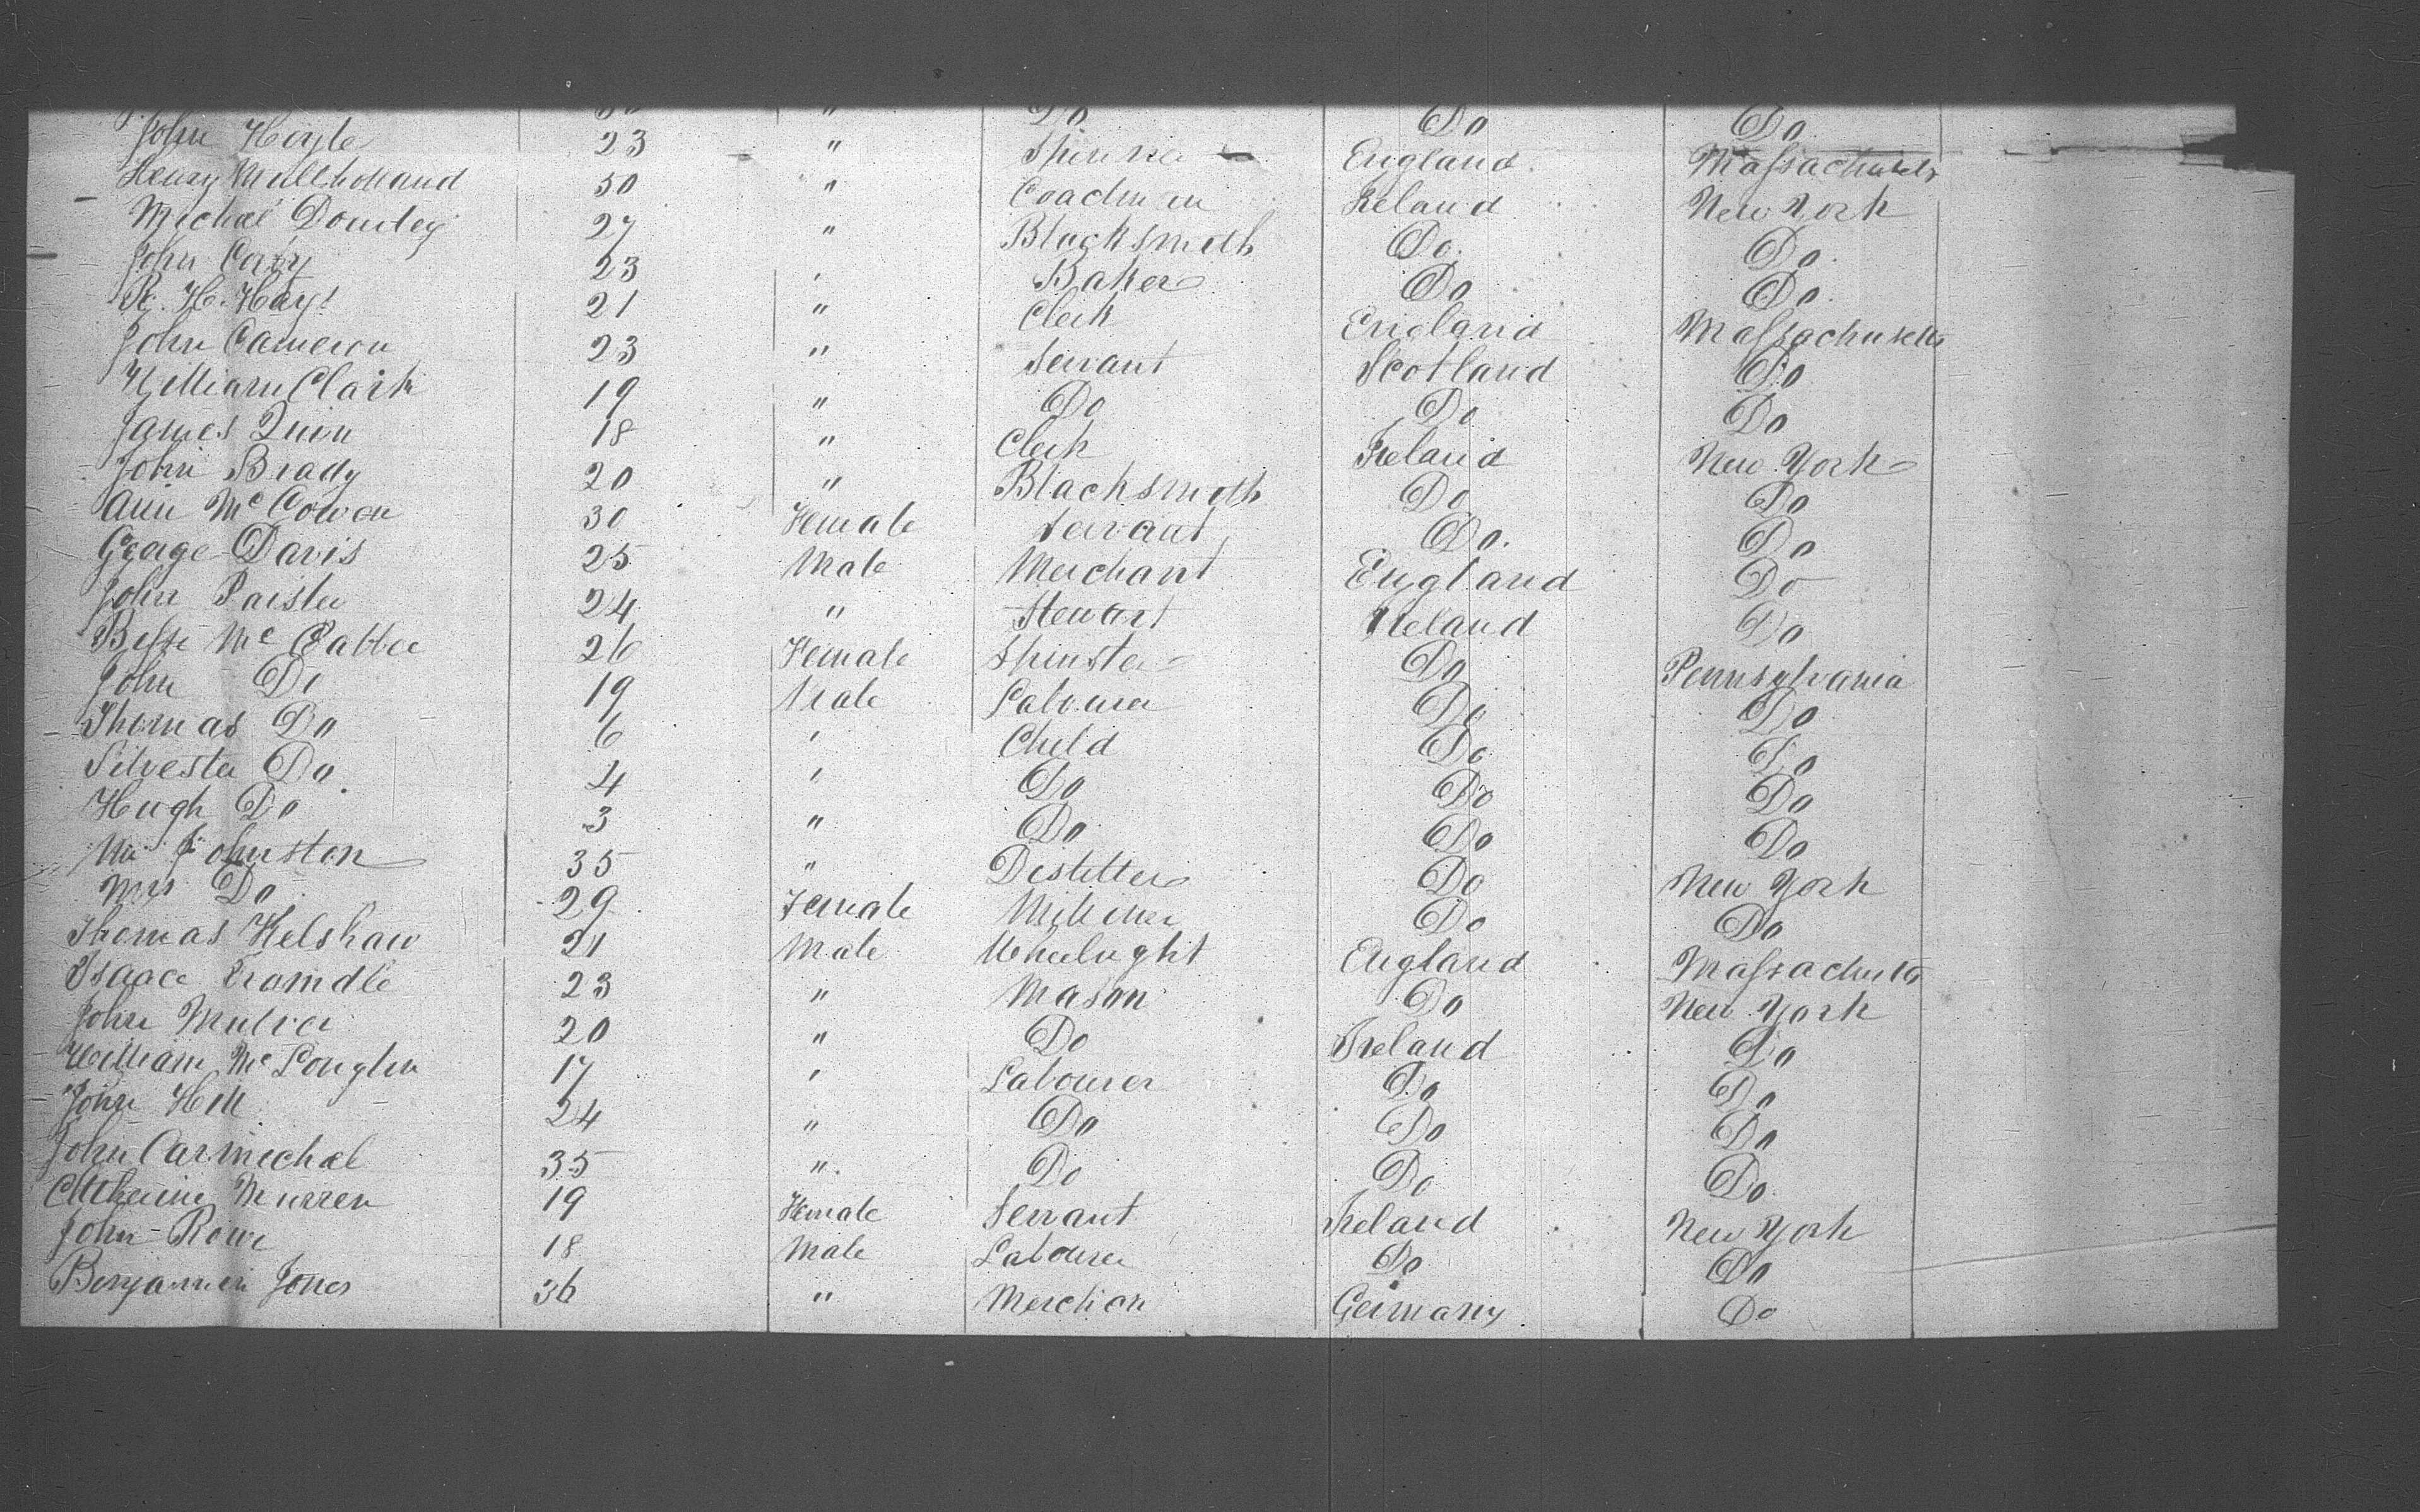 Do Do Do
John Hoyle 23 " Spinner England Massachusetts
Henry Mullholland 50 " Coachman Ireland New York
Michael Dowdey 27 " Blacksmith Do Do
John 23 " Baker Do Do
R. H. Hays 21 " Clerk England Massachusetts
John Cameron 23 " Servant Scotland Do
William Clark 19 " Do Do Do
James Quin 18 " Clerk Ireland New York
John Brady 20 " Blacksmith Do Do
Ann McCowen 30 Female Servant Do Do
George Davis 25 Male Merchant England Do
John 24 " Stewart Ireland Do
Mc 26 Female Spinster Do Pennsylvania
John Do 19 Male Labourer Do Do
Thomas Do 6 " Child Do Do
Silvester Do 4 " Do Do Do
Hugh Do 3 " Do Do Do
Mr Johnston 35 " Distiller Do New York
Mrs Do 29 Female Milliner Do Do
Thomas Helshaw 21 Male Wheelright England Massachusetts
Isaace 23 " Mason Do New York
John 20 " Do Ireland Do
William McLouglin 17 " Labourer Do Do
John Hill 24 " Do Do Do
John Carmichal 35 " Do Do Do
Murren 19 Female Servant Ireland New York
John Rowe 18 Male Labourer Do Do
Benjamin Jones 36 " Merchan Germany Do